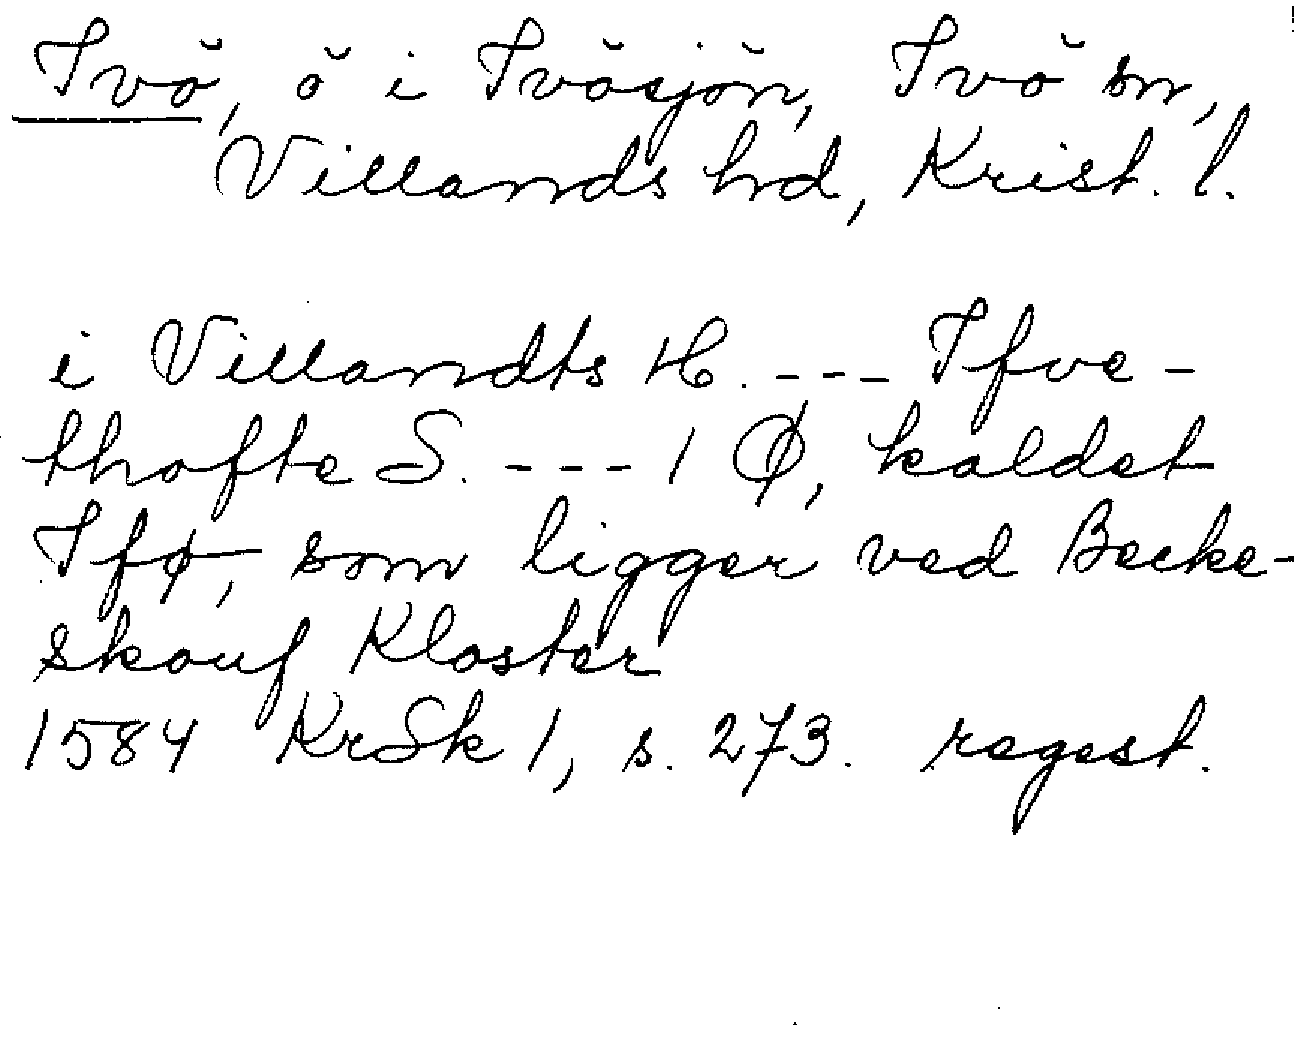 Ivö, ö i Ivösjön, Ivö sn,
Villands hd, Krist. l.
i Villandts H. --- Ifve-
thofte S. --- 1 Ø, kaldet
Ifø, som ligger ved Becke-
skouf Kloster
1584 KrSk 1, s. 273. regest.